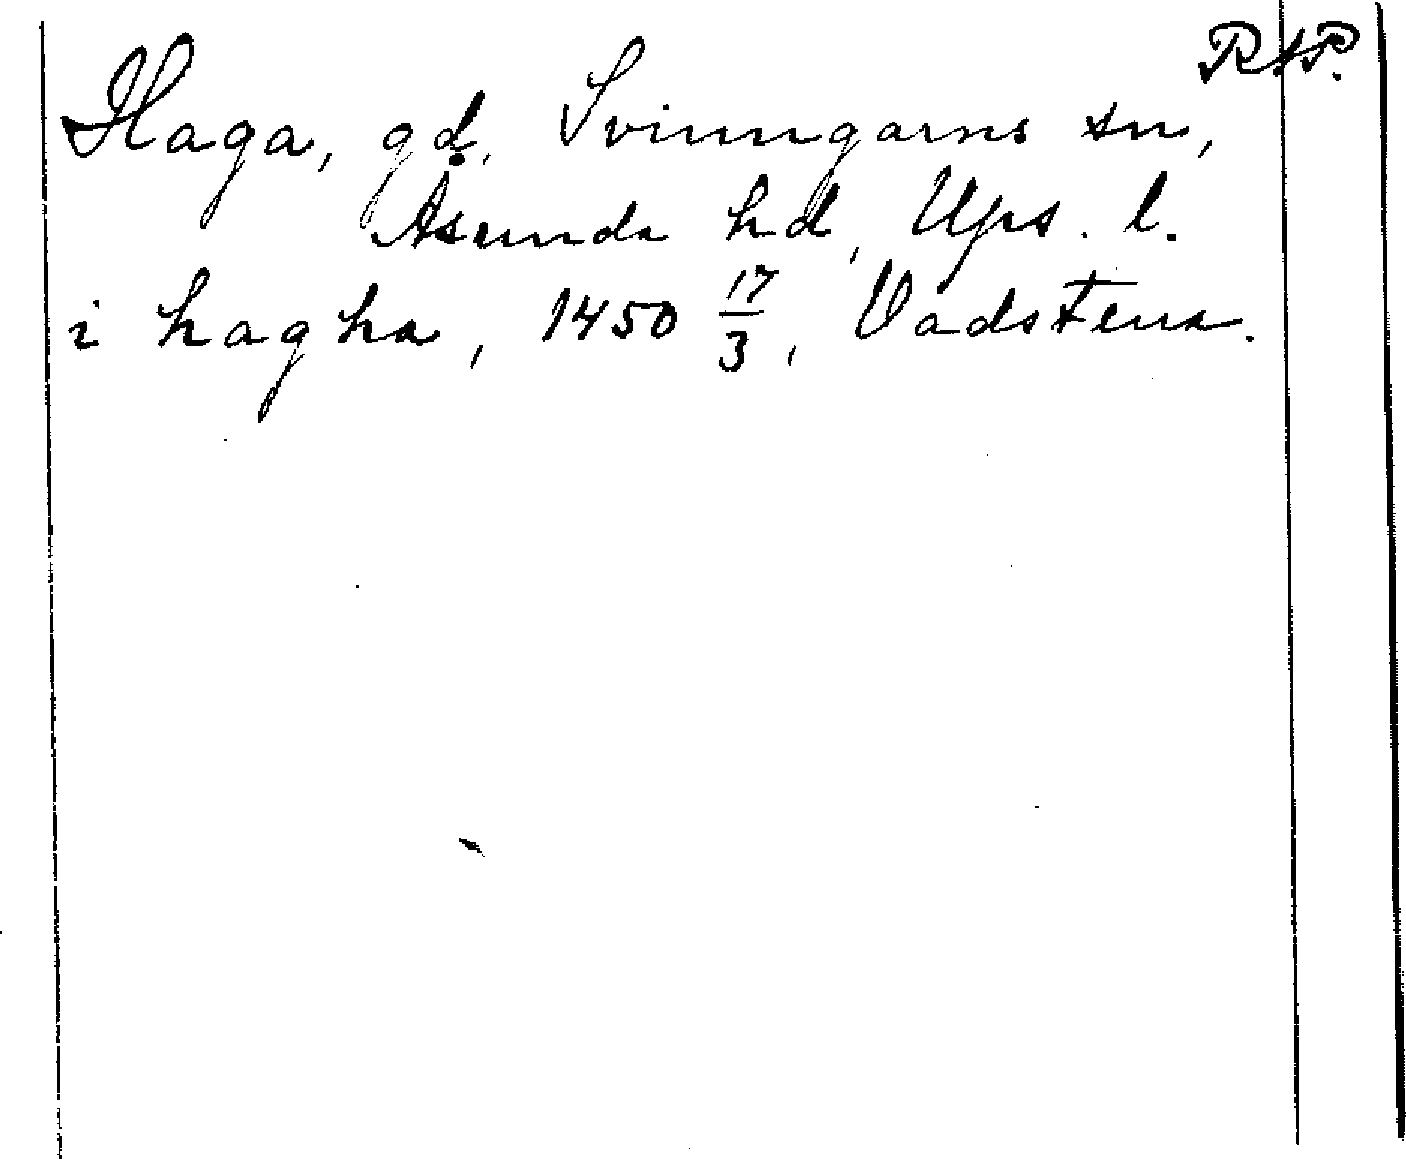 RAP.
Haga, gd, Svinngarns sn,
Åsunda hd, Ups. l.
i hagha, 1450 17/3, Vadstena.